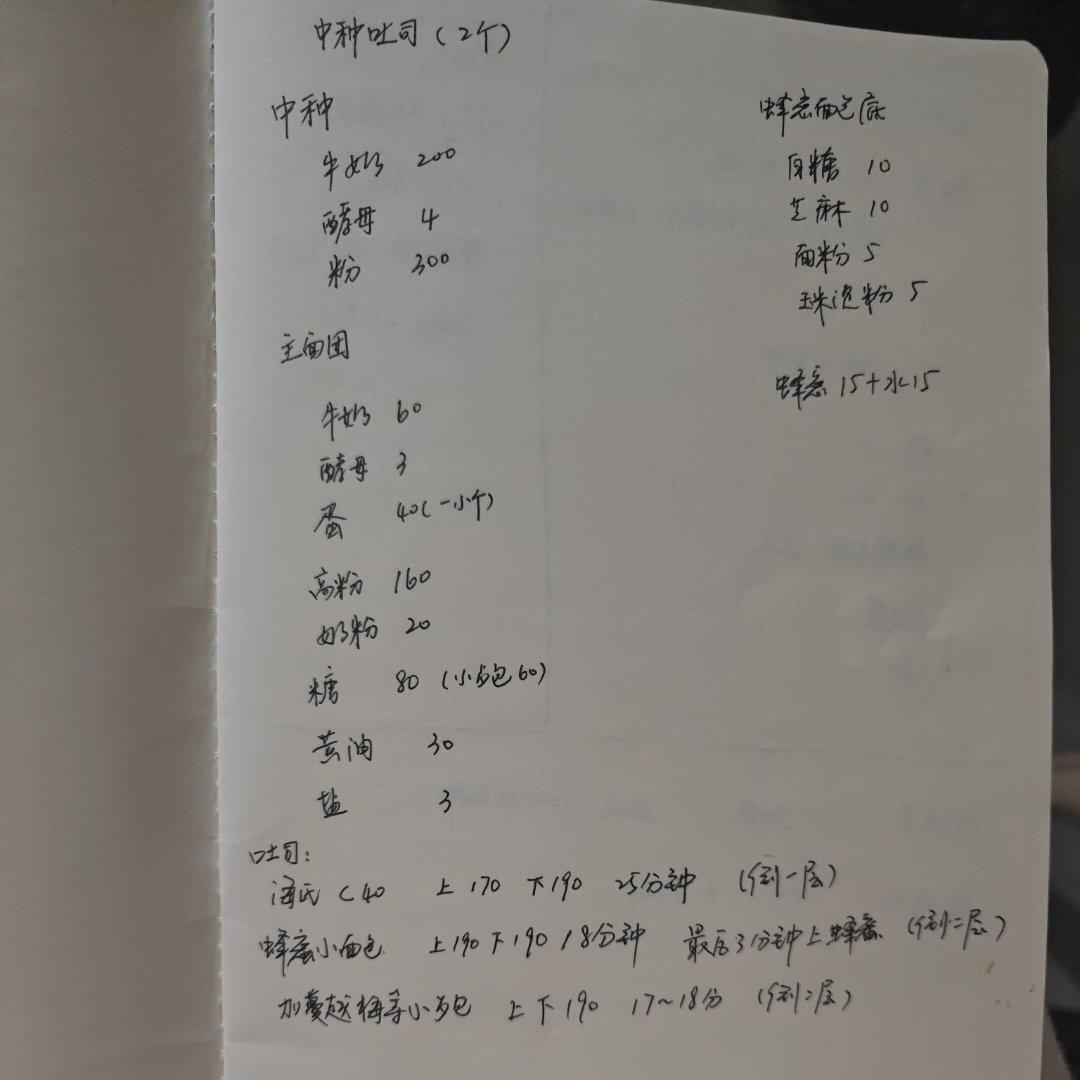 中种吐司(2个)
中种
牛奶 200
酵母 4
粉 300
主面团
牛奶 60
酵母 3
蛋 40(一小个)
高粉 160
奶粉 20
糖 80 (小面包60)
黄油 30
盐 3
吐司:
海氏C40 上170 下190 25分钟 (倒一层)
蜂蜜小面包 上190下190 18分钟 最后3分钟上蜂蜜 (倒二层)
加蔓越梅等小面包 上下190 17~18分 (倒二层)
蜂蜜面包底
白糖 10
芝麻 10
面粉 5
玉米淀粉 5
蜂蜜15+水15